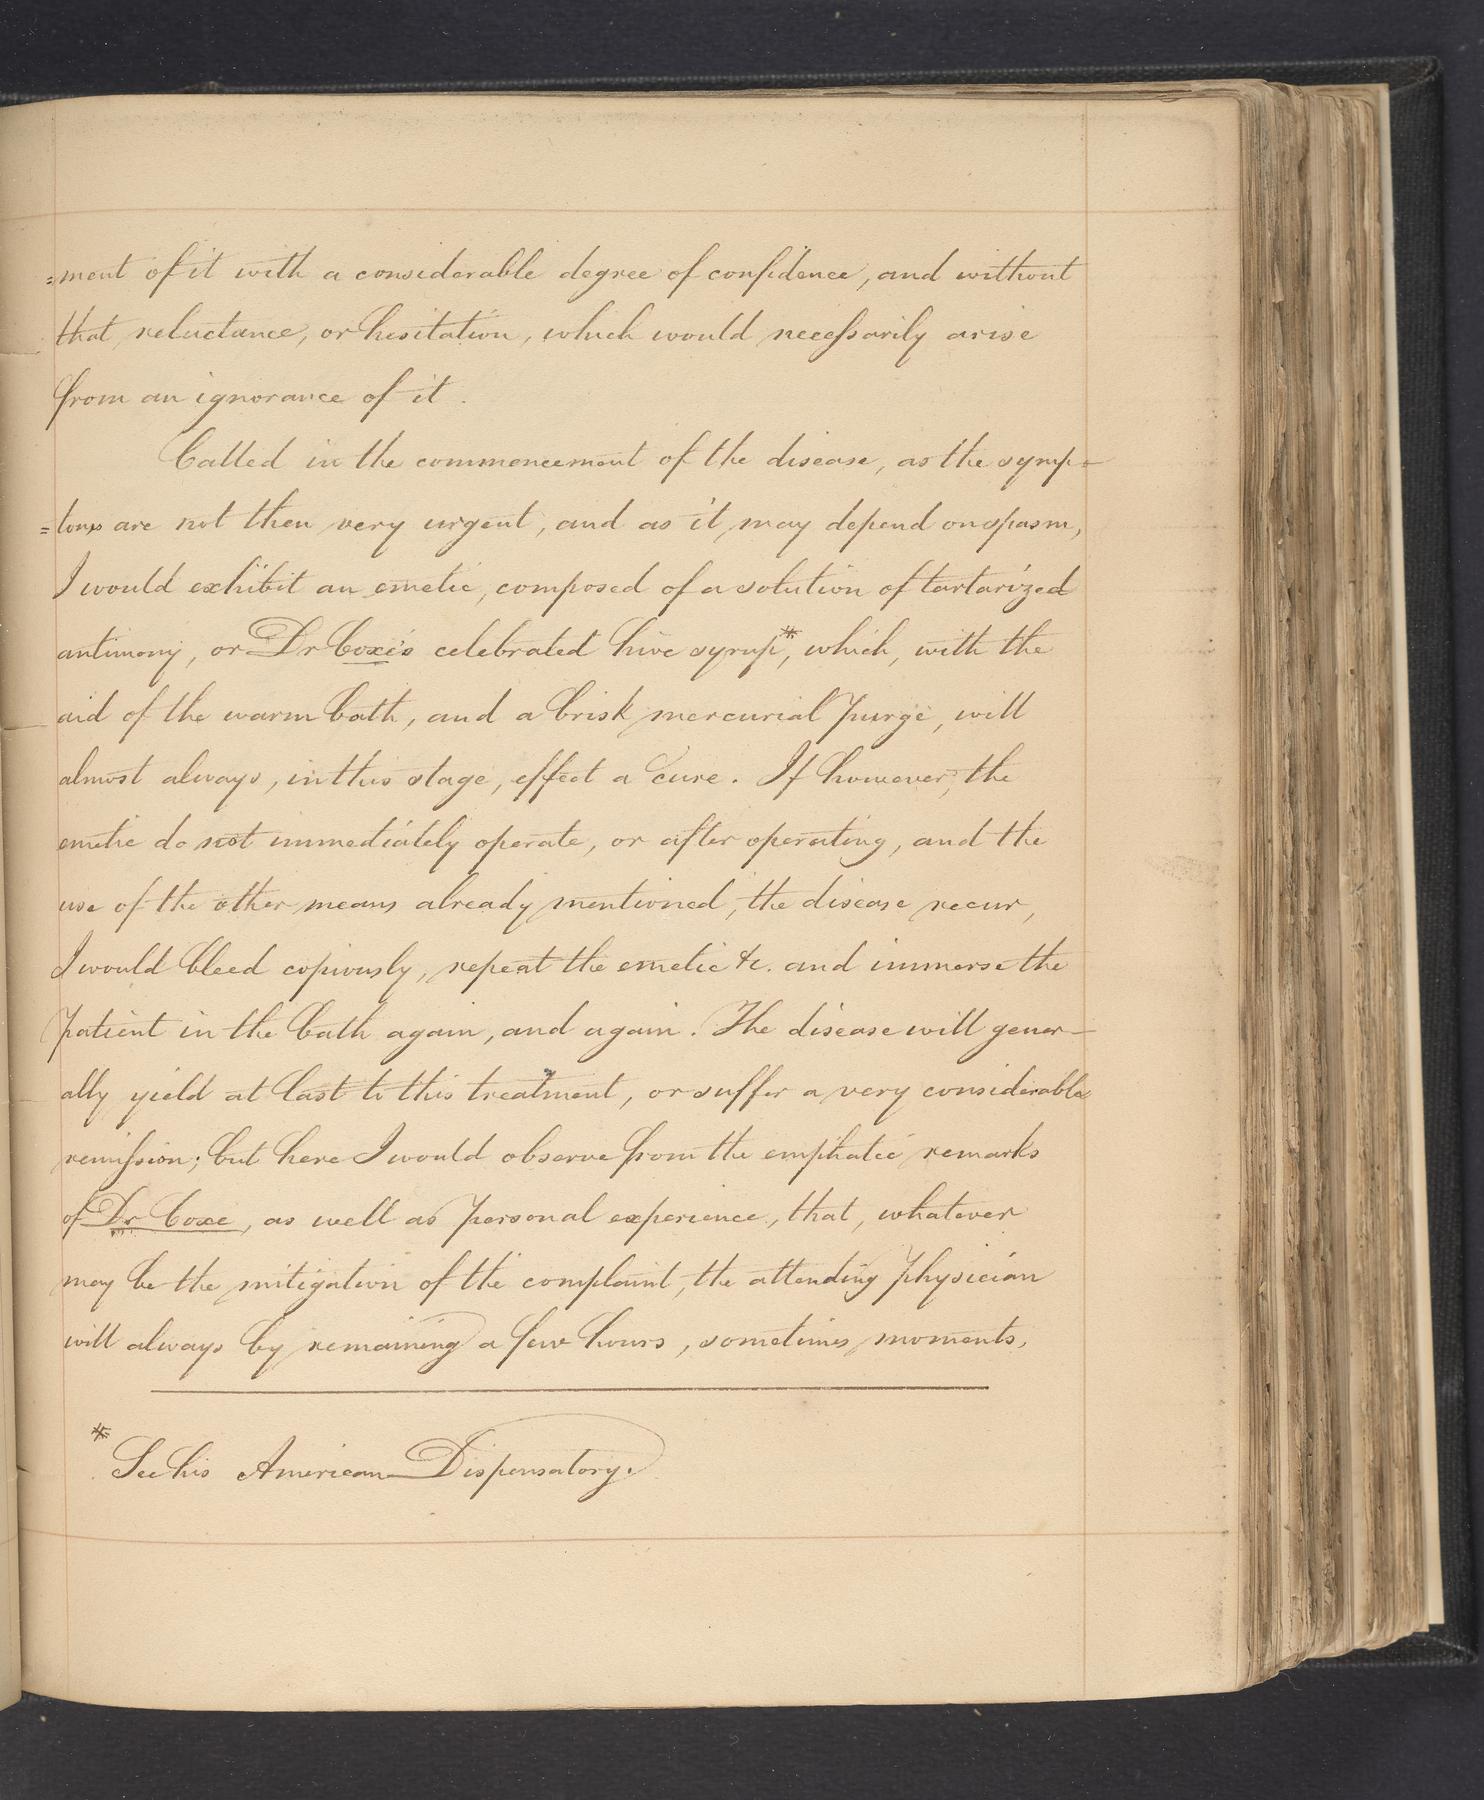 =ment of it with a considerable degree of confidence, and without
that reluctance, or hesitation, which would necessarily arise
from an ignorance of it.
Called in the commencement of the disease, as the symp-
=toms are not then very urgent, and as it may depend on spasm,
I would exhibit an emetic, composed of a solution of tartarized
antimony, or Dr Coxe's celebrated hive syrup*, which, with the
aid of the warm bath, and a brisk mercurial purge, will
almost always, in this stage, effect a cure. If however, the
emetic do not immediately operate, or after operating, and the
use of the other means already mentioned, the disease recur,
I would bleed copiously, repeat the emetic &c. and immerse the
patient in the bath again, and again. The disease will gener-
ally yield at last to this treatment, or suffer a very considerable
remission; but here I would observe from the emphatic remarks
of Dr Coxe, as well as personal experience, that, whatever
may be the mitigation of the complaint, the attending physician
will always by remaining a few hours, sometimes moments,
* See his American Dispensatory.